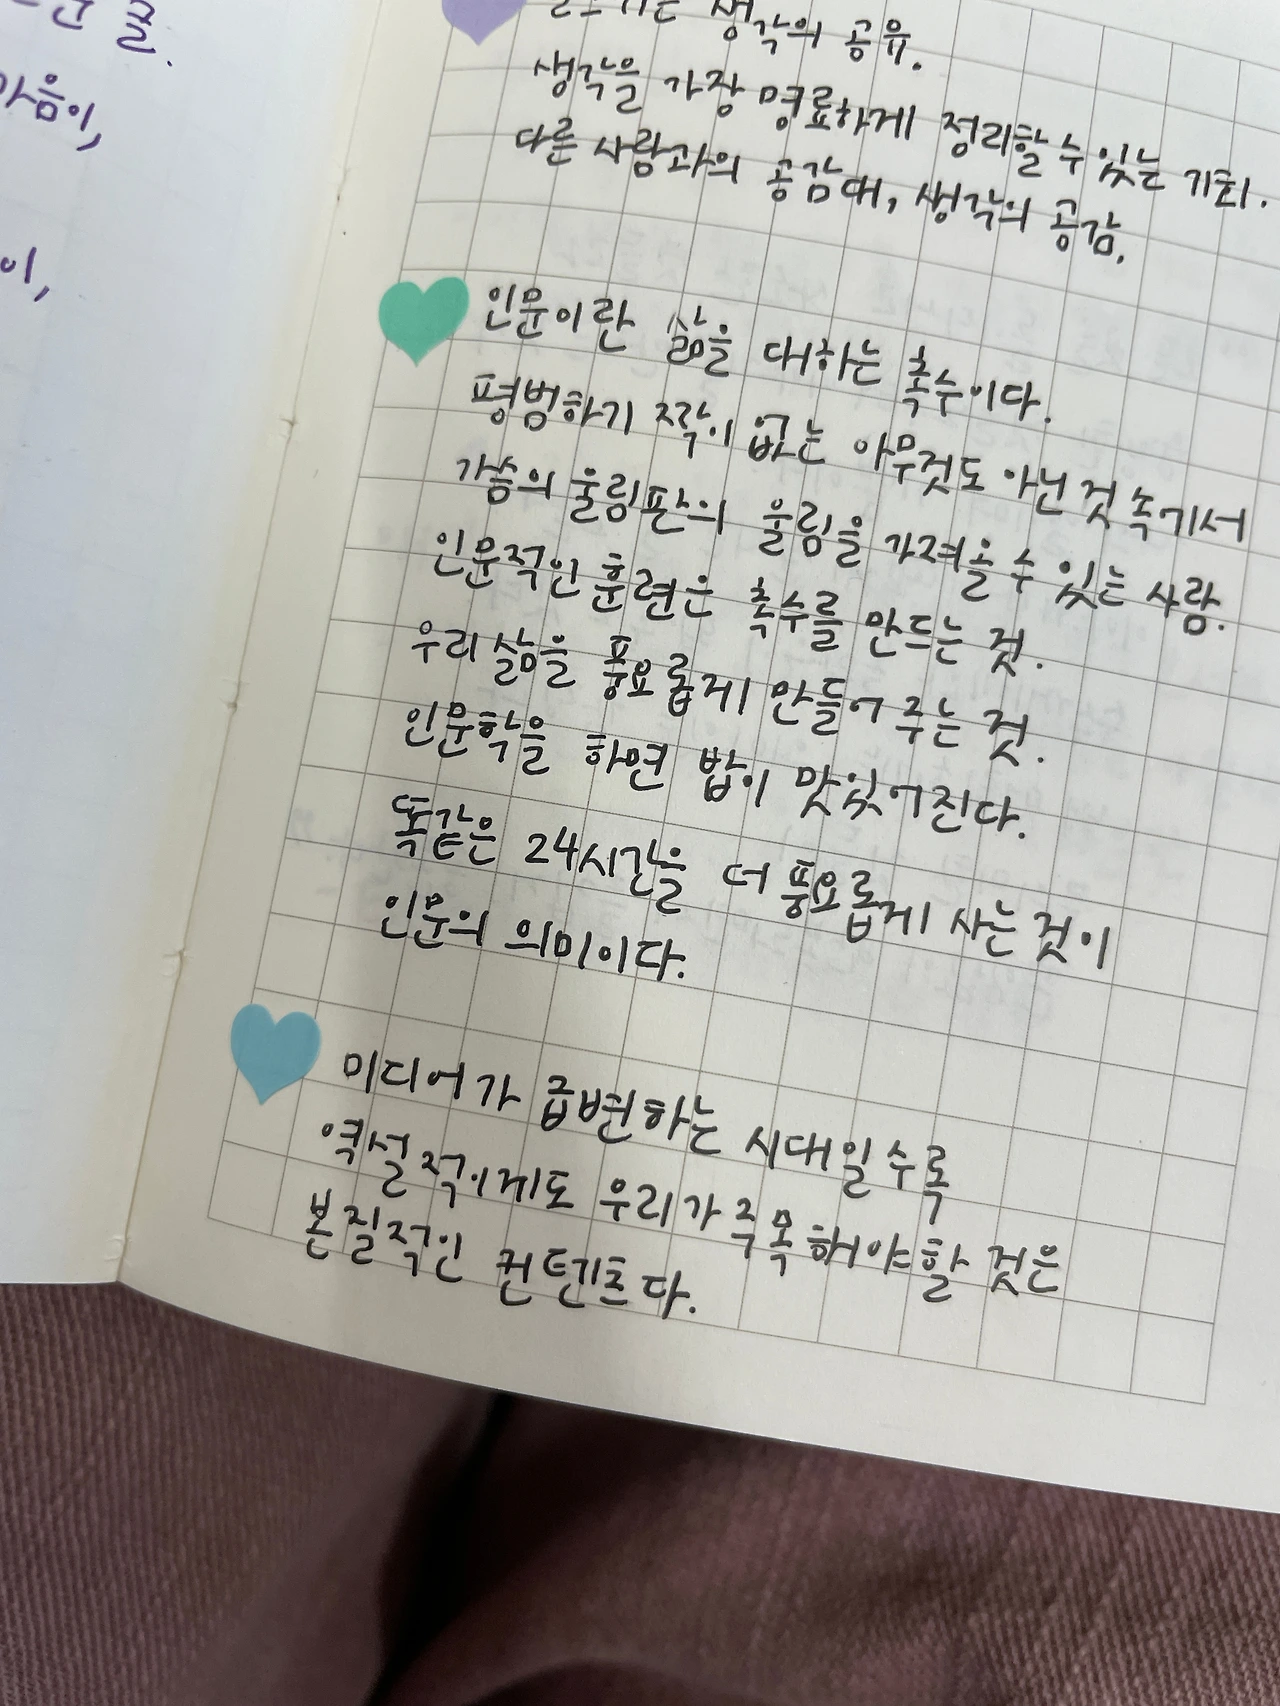 생각의 공유.
생각을 가장 명료하게 정리할 수 있는 기회.
다른 사람과의 공감대, 생각의 공감.
인문이란 삶을 대하는 촉수이다.
평범하기 짝이 없는 아무것도 아닌 것 속에서
가슴의 울림판의 울림을 가져올 수 있는 사람.
인문적인 훈련은 촉수를 만드는 것.
우리 삶을 풍요롭게 만들어 주는 것.
인문학을 하면 밥이 맛있어진다.
똑같은 24시간을 더 풍요롭게 사는 것이
인문의 의미이다.
미디어가 급변하는 시대일수록
역설적이게도 우리가 주목해야할 것은
본질적인 컨텐츠다.